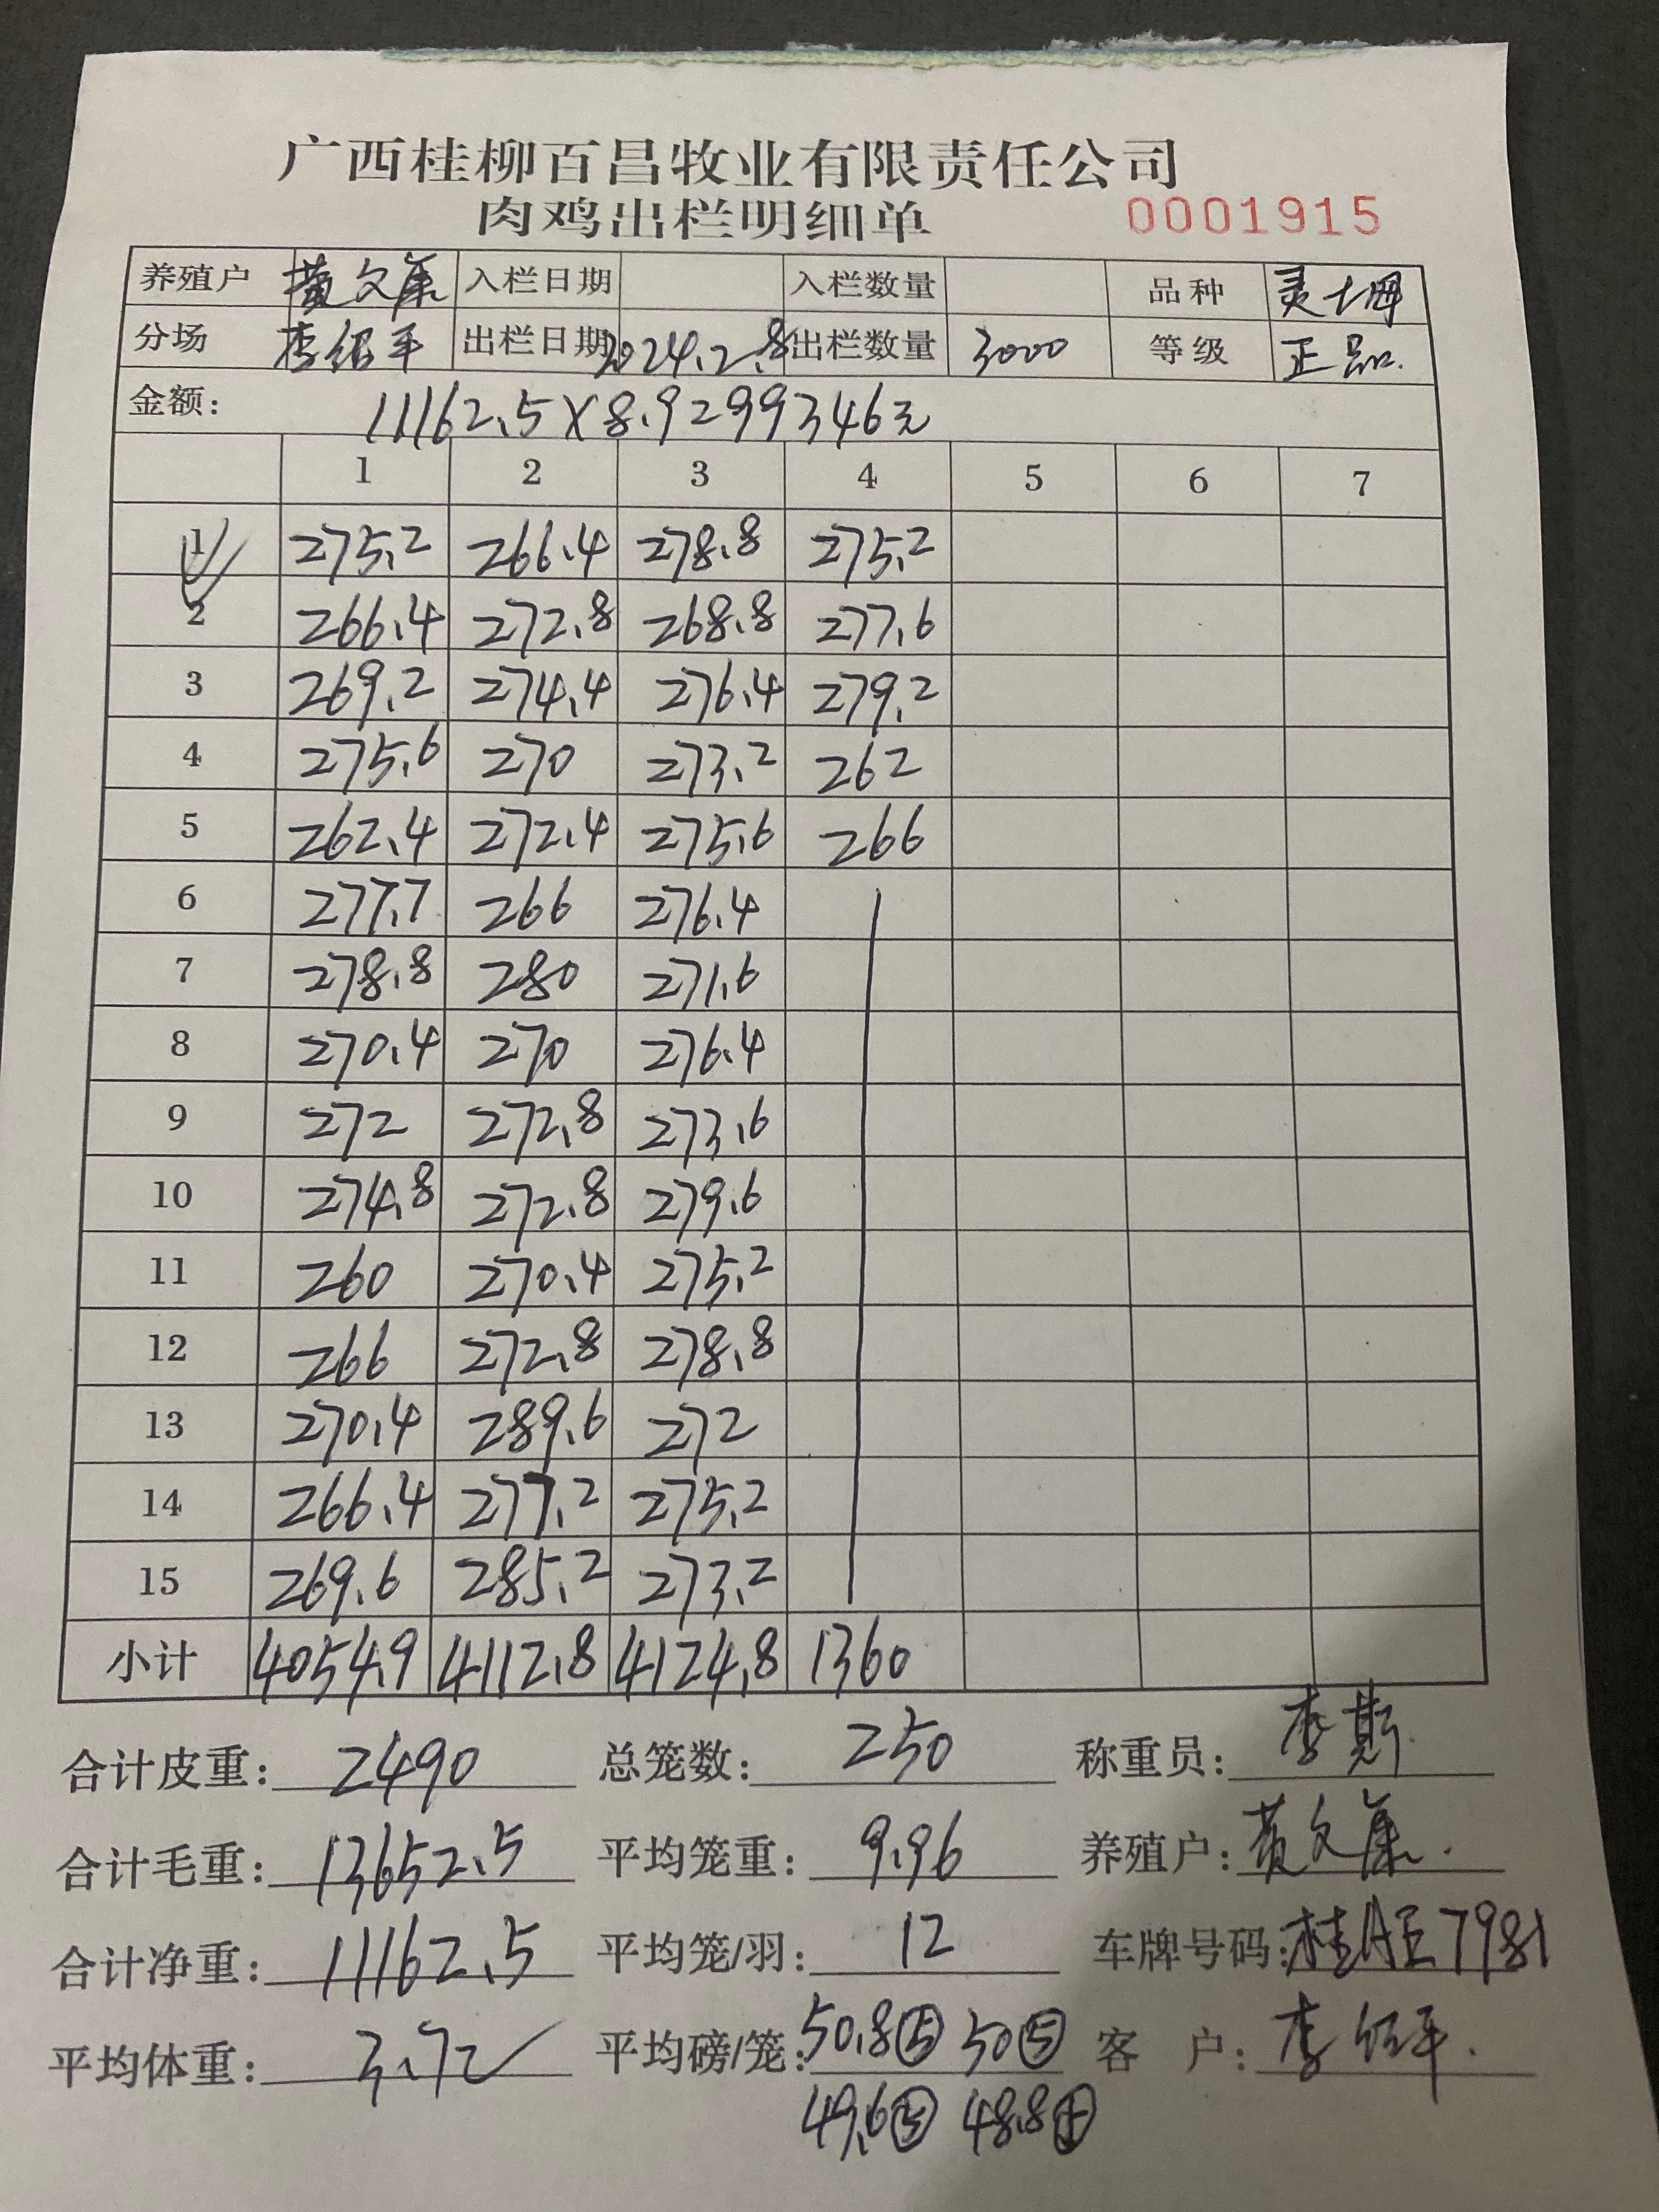 广西桂柳百昌牧业有限责任公司
肉鸡出栏明细单 0001915
养殖户 黄文 入栏日期 入栏数量 品种 灵土
分场 李绍平 出栏日期 2024.2.8 出栏数量 3000 等级 正品.
金额: 11162.5×8.9 2993 46元
1 2 3 4 5 6 7
1 275.2 266.4 278.8 275.2
2 266.4 272.8 268.8 277.6
3 269.2 274.4 276.4 279.2
4 275.6 270 273.2 262
5 262.4 272.4 275.6 266
6 277.7 266 276.4
7 278.8 280 271.6
8 270.4 270 276.4
9 272 272.8 273.6
10 274.8 272.8 279.6
11 260 270.4 275.2
12 266 272.8 278.8
13 270.4 289.6 272
14 266.4 277.2 275.2
15 269.6 285.2 273.2
小计 4054.9 4112.8 4124.8 1360
合计皮重: 2490 总笼数: 250 称重员: 李斯
合计毛重: 13652.5 平均笼重: 9.96 养殖户: 黄文
合计净重: 11162.5 平均笼/羽: 12 车牌号码: 桂A 7981
平均体重: 3.72 平均磅/笼: 50.8⑤ 50⑤ 客 户: 李红平.
49.6⑤ 48.8